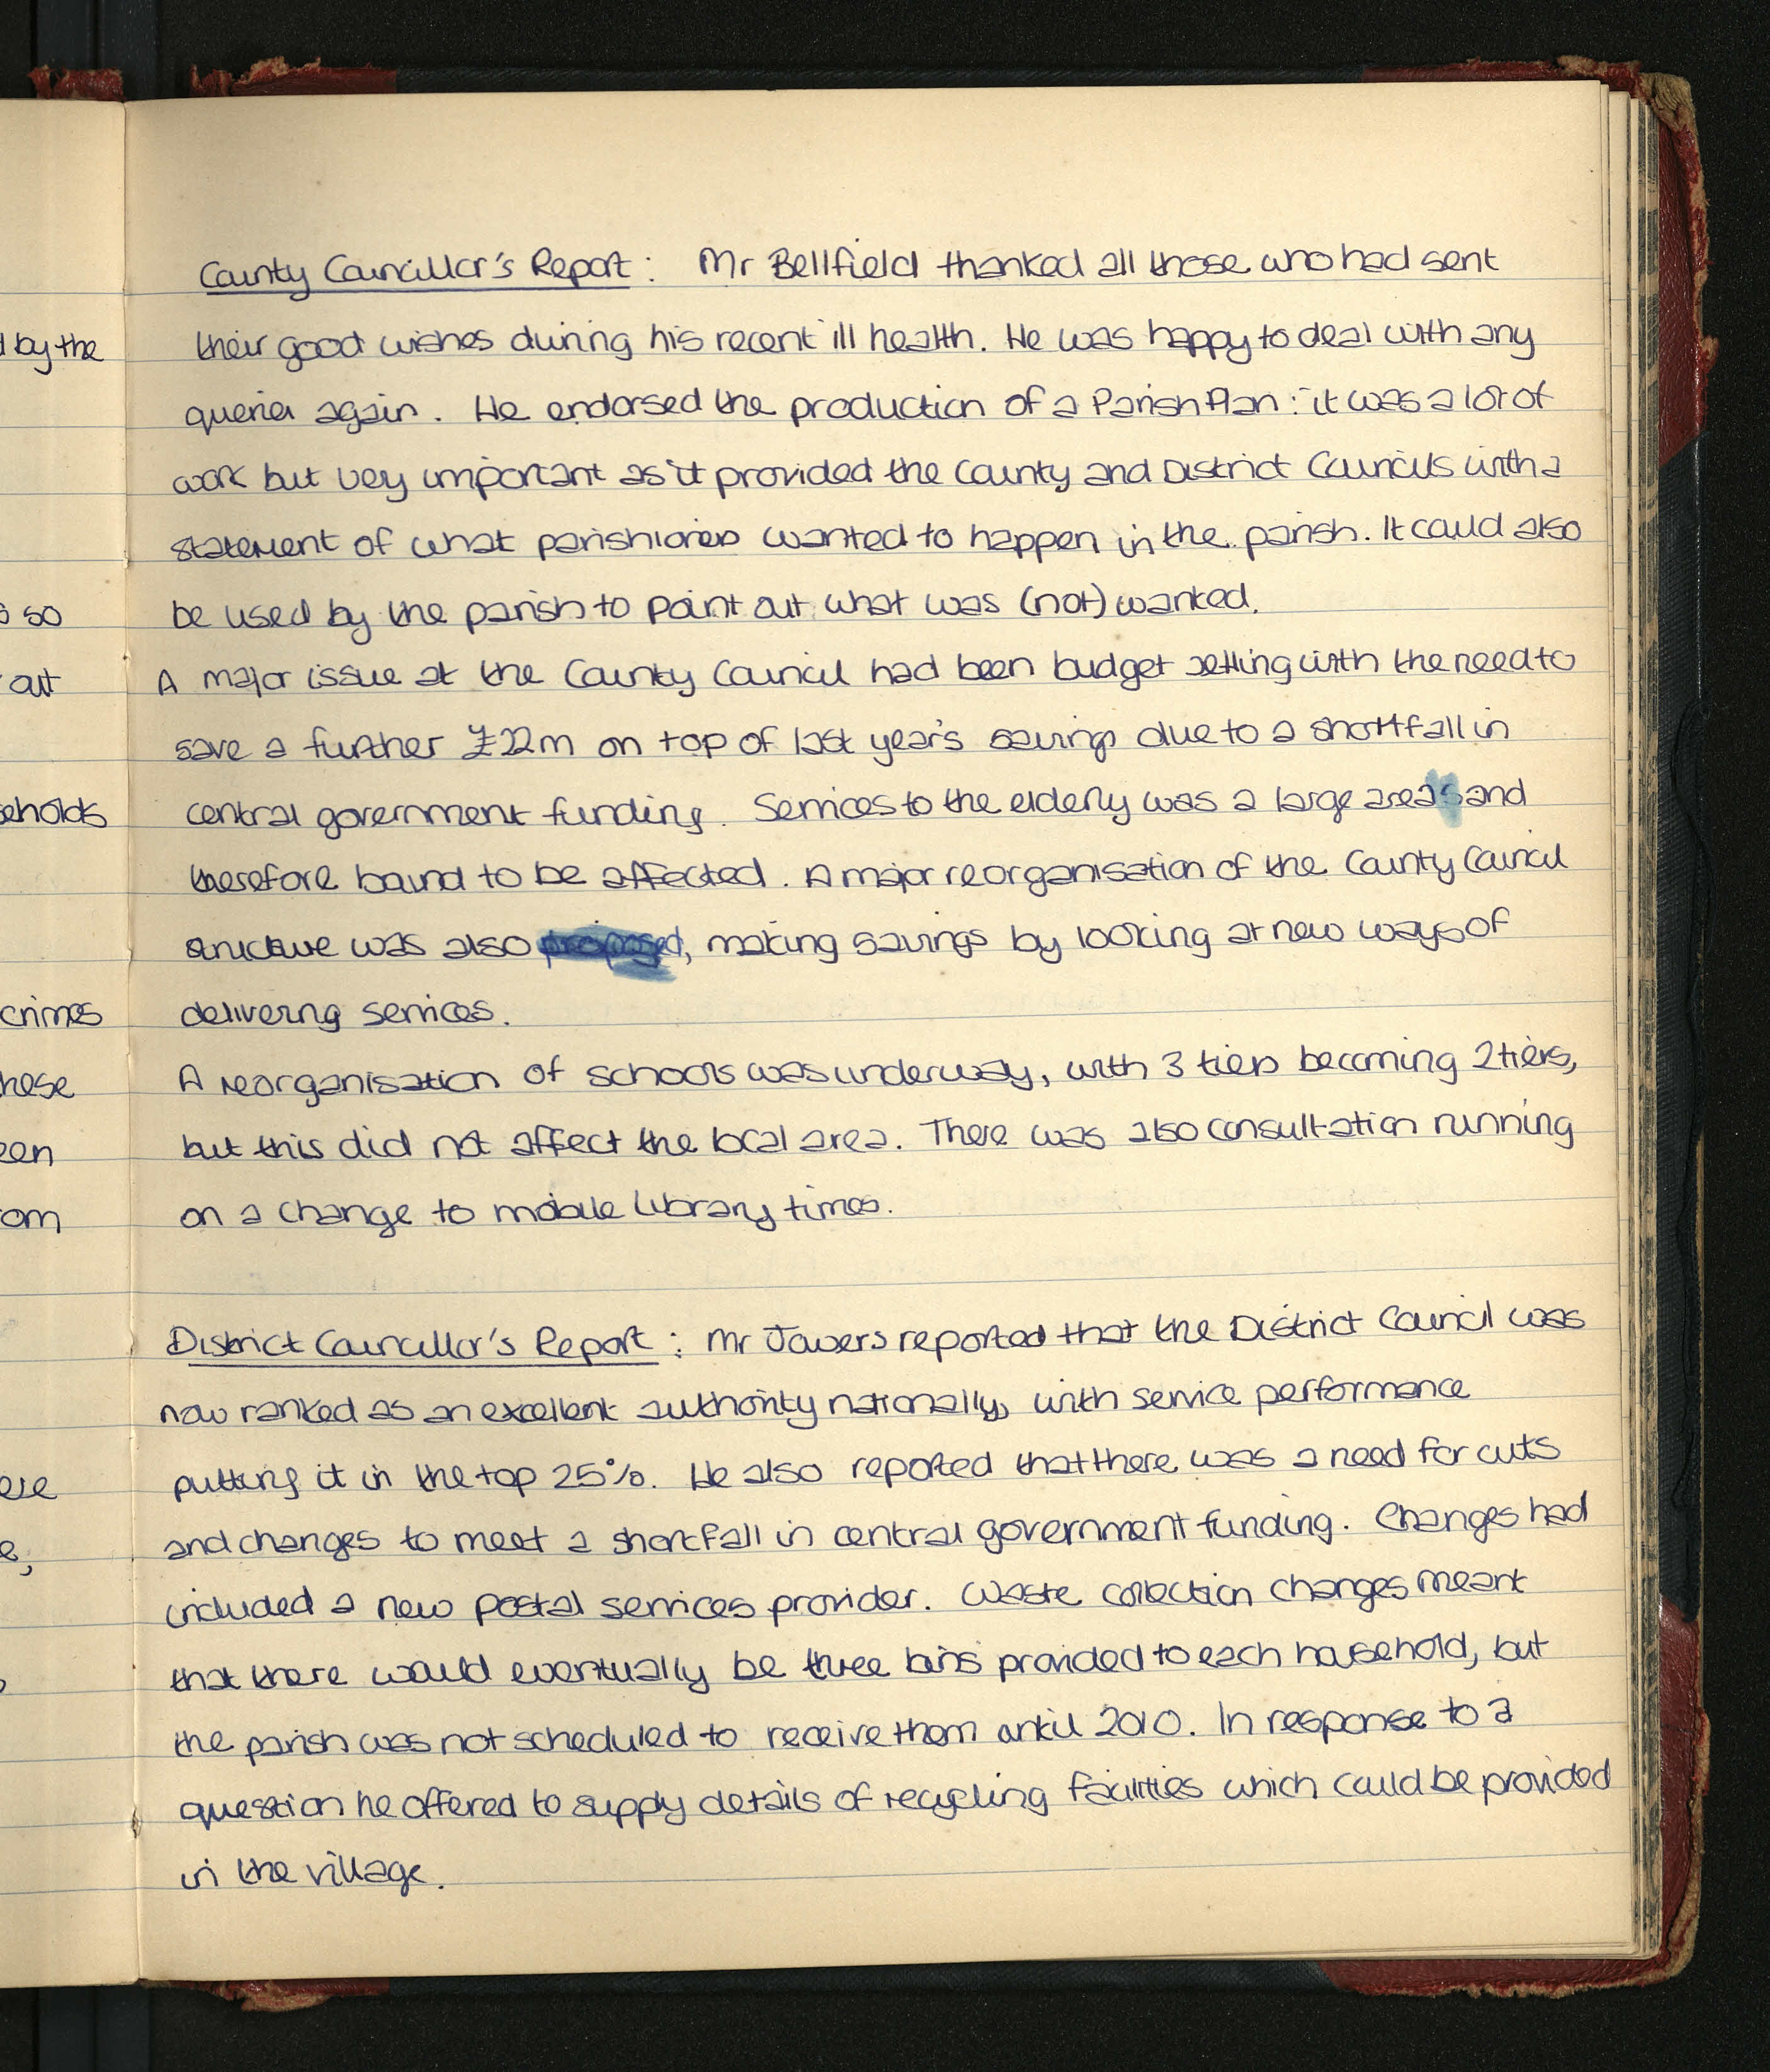 County Councillor's Report : Mr Bellfield thanked all those who had sent
their good wishes during his recent ill health. He was happy to deal with any
queries again. He endorsed the production of a Parish Plan : it was a lot of
work but very important as it provided the County and District Councils with a
statement of what parishioners wanted to happen in the parish. It could also
be used by the parish to point out what was (not) wanted.
A major issue at the County Council had been budget setting with the need to
save a further £22m on top of last year's savings due to a shortfall in
central government funding. Services to the elderly was a large area and
therefore bound to be affected. A major reorganisation of the County Council
structure was also proposed, making savings by looking at new ways of
delivering services.
A reorganisation of schools was underway, with 3 tiers becoming 2 tiers,
but this did not affect the local area. There was also consultation running
on a change to mobile library times.
District Councillor's Report : Mr Jowers reported that the District Council was
now ranked as an excellent authority nationally, with service performance
putting it in the top 25%. He also reported that there was a need for cuts
and changes to meet a shortfall in central government funding. Changes had
included a new postal services provider. Waste collection changes meant
that there would eventually be three bins provided to each household, but
the parish was not scheduled to receive them until 2010. In response to a
question he offered to supply details of recycling facilities which could be provided
in the village.
by the
so
out
crimes